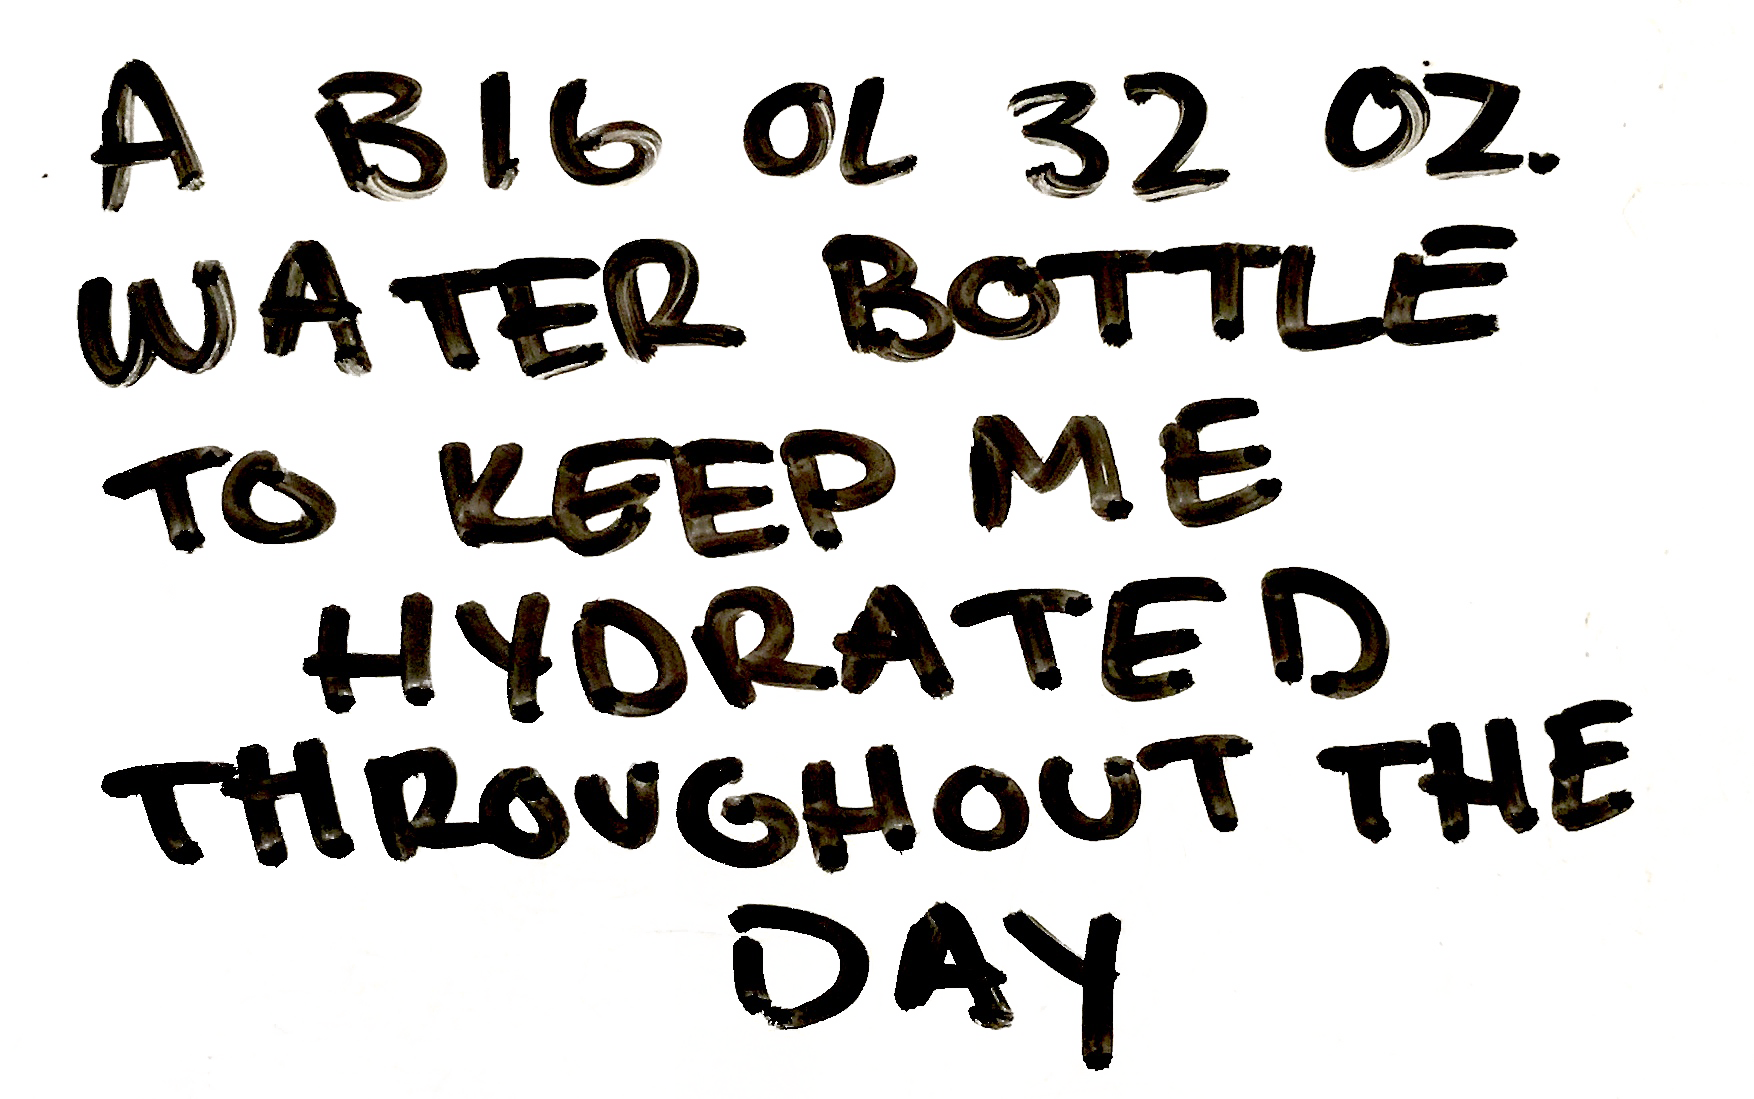 A BIG OL 32 OZ.
WATER BOTTLE
TO KEEP ME
HYDRATED
THROUGHOUT THE
DAY